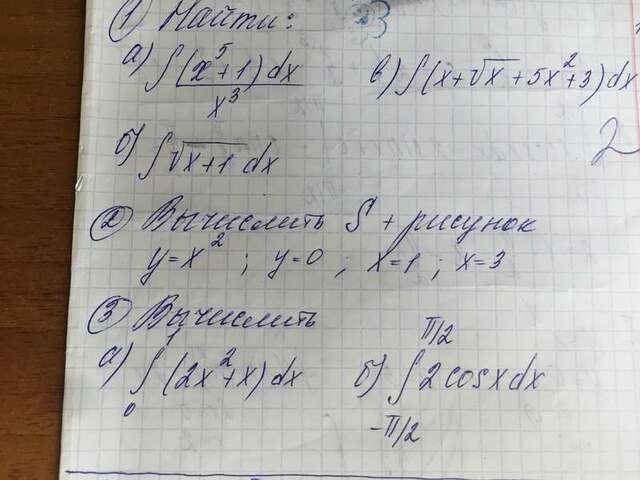 ① Найти:
а) ∫ (x⁵+1)dx / x³   в) ∫(x+√x+5x²+3)dx
б) ∫√x+1 dx
② Вычислить S + рисунок
y=x²; y=0; x=1; x=3
③ Вычислить
а) ∫₀¹ (2x²+x)dx   б) ∫_{-π/2}^{π/2} 2cosxdx